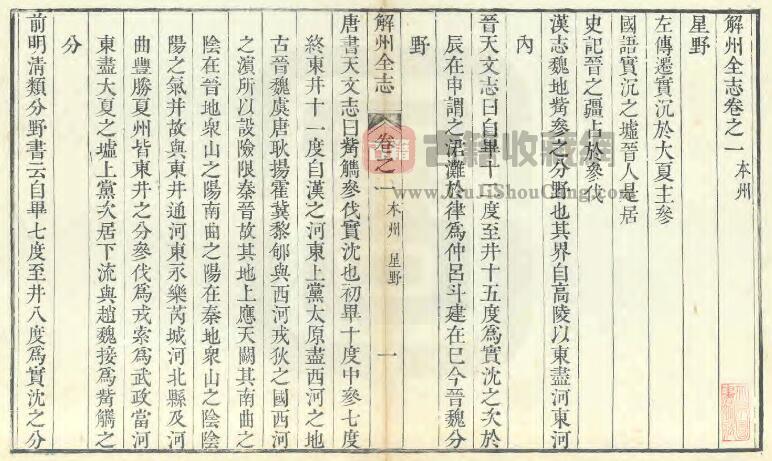 解州全志卷之一 本州
星野
左傳遷實沉於大夏主參
國語實沉之墟晉人是居
史記晉之疆占於參伐
漢志魏地觜參之分野也其界自高陵以東盡河東河
內
晉天文志曰自畢十二度至井十五度為實沈之次於
辰在申謂之涒灘於律為仲呂斗建在巳今晉魏分
野
解州全志 卷之一 本州 星野 一
唐書天文志曰觜觿參伐實沈也初畢十度中參七度
終東井十一度自漢之河東上黨太原盡西河之地
古晉魏虞唐耿揚霍冀黎郇與西河戎狄之國西河
之濱所以設險限秦晉故其地上應天闕其南曲之
陰在晉地衆山之陽南曲之陽在秦地衆山之陰陰
陽之氣并故與東井通河東永樂芮城河北縣及河
曲豐勝夏州皆東井之分參伐為戎索為武政當河
東盡大夏之墟上黨次居下流與趙魏接為觜觿之
分
前明清類分野書云自畢七度至井八度為實沈之分
古籍收藏網
www.GuJiShouCang.com